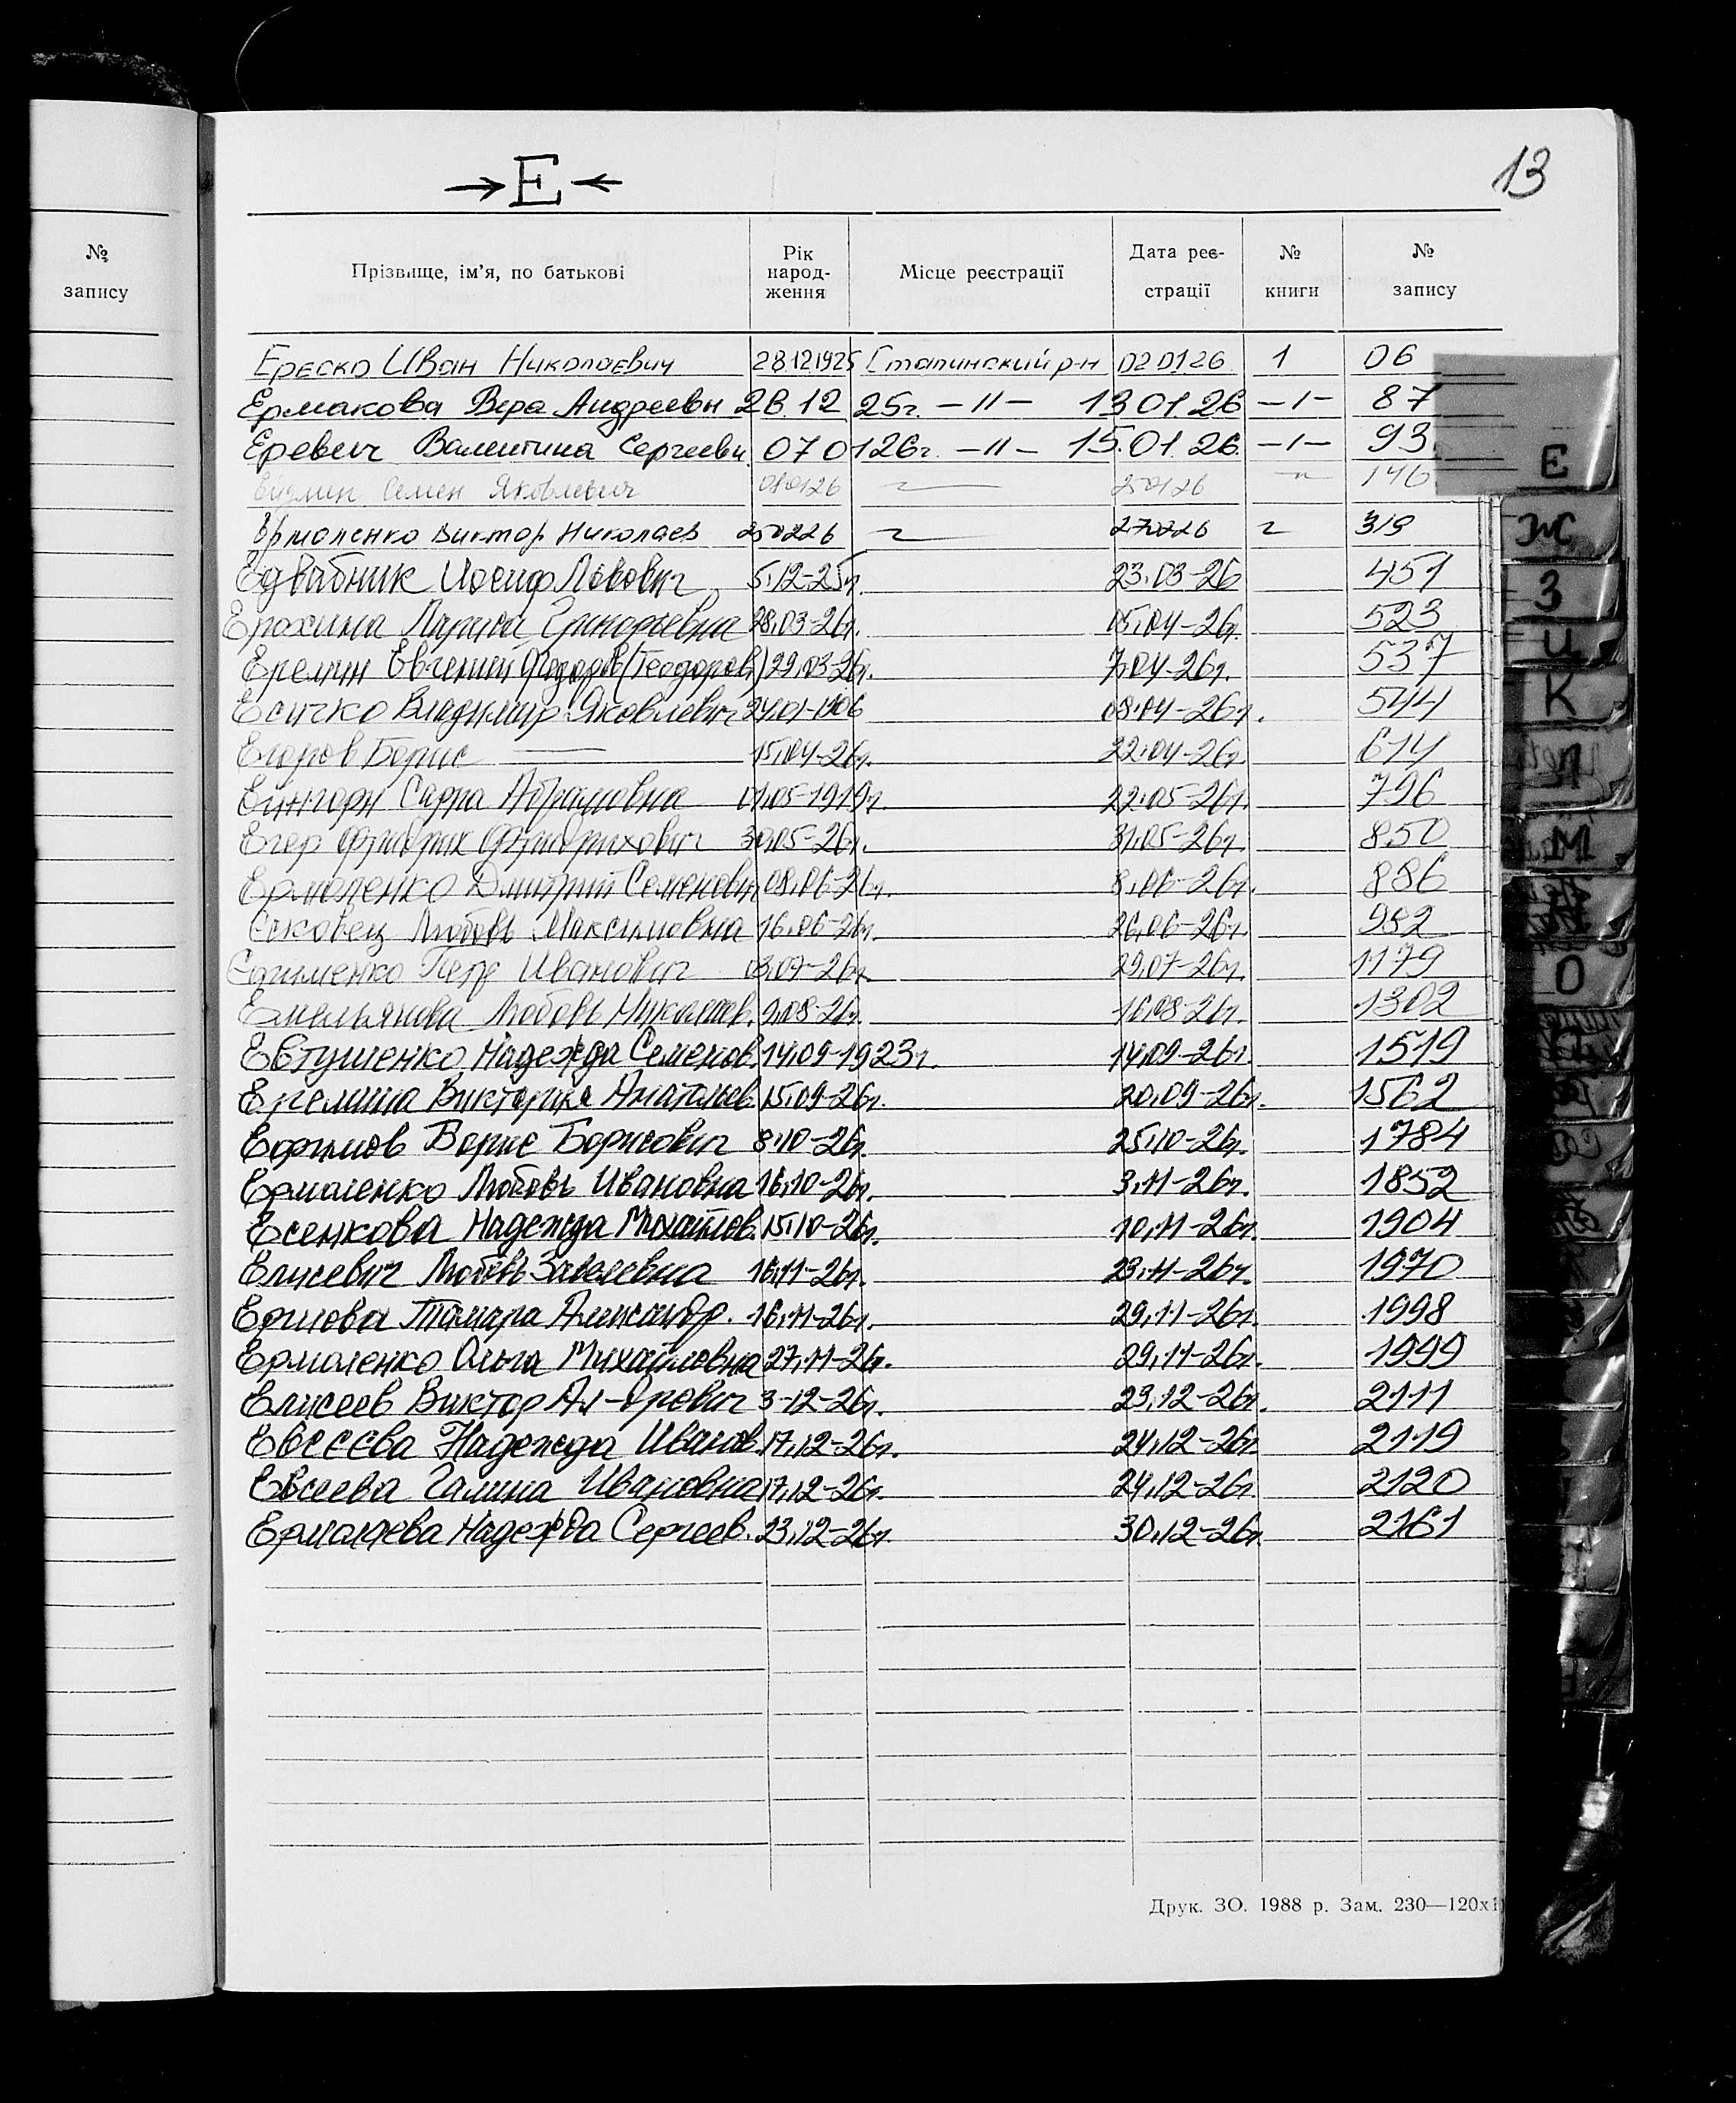 13
→Е←
№ запису
Прізвище, ім'я, по батькові Рік народ-ження Місце реєстрації Дата реє-страції № книги № запису
Ереско Иван Николаевич 28.12.1925 Сталинский р-н 02 01 26 1 06
Ермакова Вера Андреевн 28.12 25г. —II— 13 01 26 —I— 87
Еревич Валентина Сергеевн. 07 01 26г. —II— 15.01.26. —I— 93.
Семен Яковлевич 080126 250126 146
Ермоленко Виктор Николаев 250226 270226 319
Едвабник Иосиф Львович 5.12-25г. 23.03-26 451
Ерохина Лариса Григорьевна 28.03-26г. 05.04-26г. 523
Еремин Евгений Федоров (Теодоров) 29.03-26г. 7.04-26г. 537
Есичко Владимир Яковлевич 24.01-1906 08.04-26г. 544
Егоров Борис — 15.04-26г. 22.04-26г. 614
Ейнгорн Сарра Абрамовна 01.05-1919г. 22.05-26г. 796
Егер Фридрих Фридрихович 30.05-26г. 31.05-26г. 850
Ермоленко Дмитрий Семенович 08.06-26г. 8.06-26г. 886
Есковец Любовь Максимовна 16.06-26г. 26.06-26г. 982
Петр Иванович 03.07-26г. 29.07-26г. 1179
Емельянова Любовь Николаев. 9.08-26г. 16.08-26г. 1302
Евтушенко Надежда Семенов. 14.09-1923г. 14.09-26г. 1519
Еремина Виктория Анатольев. 15.09-26г. 20.09-26г. 1562
Ефимов Борис Борисович 8.10-26г. 25.10-26г. 1784
Ермоленко Любовь Ивановна 16.10-26г. 3.11-26г. 1852
Есенкова Надежда Михайлов. 15.10-26г. 10.11-26г. 1904
Елисевич Любовь Савельевна 16.11-26г. 23.11-26г. 1970
Ершова Тамара Александр. 16.11-26г. 29.11-26г. 1998
Ермоленко Ольга Михайловна 27.11-26г. 29.11-26г. 1999
Елисеев Виктор Ал-дрович 3-12-26г. 23.12-26г. 2111
Евсеєва Надежда Иванов. 17.12-26г. 24.12-26г 2119
Евсеева Галина Ивановна 17.12-26г. 24.12-26г 2120
Надежда Сергеев. 23.12-26г. 30.12-26г. 2161
Е
Ж
З
И
К
Л
М
О
Друк. ЗО. 1988 р. Зам. 230—120х1